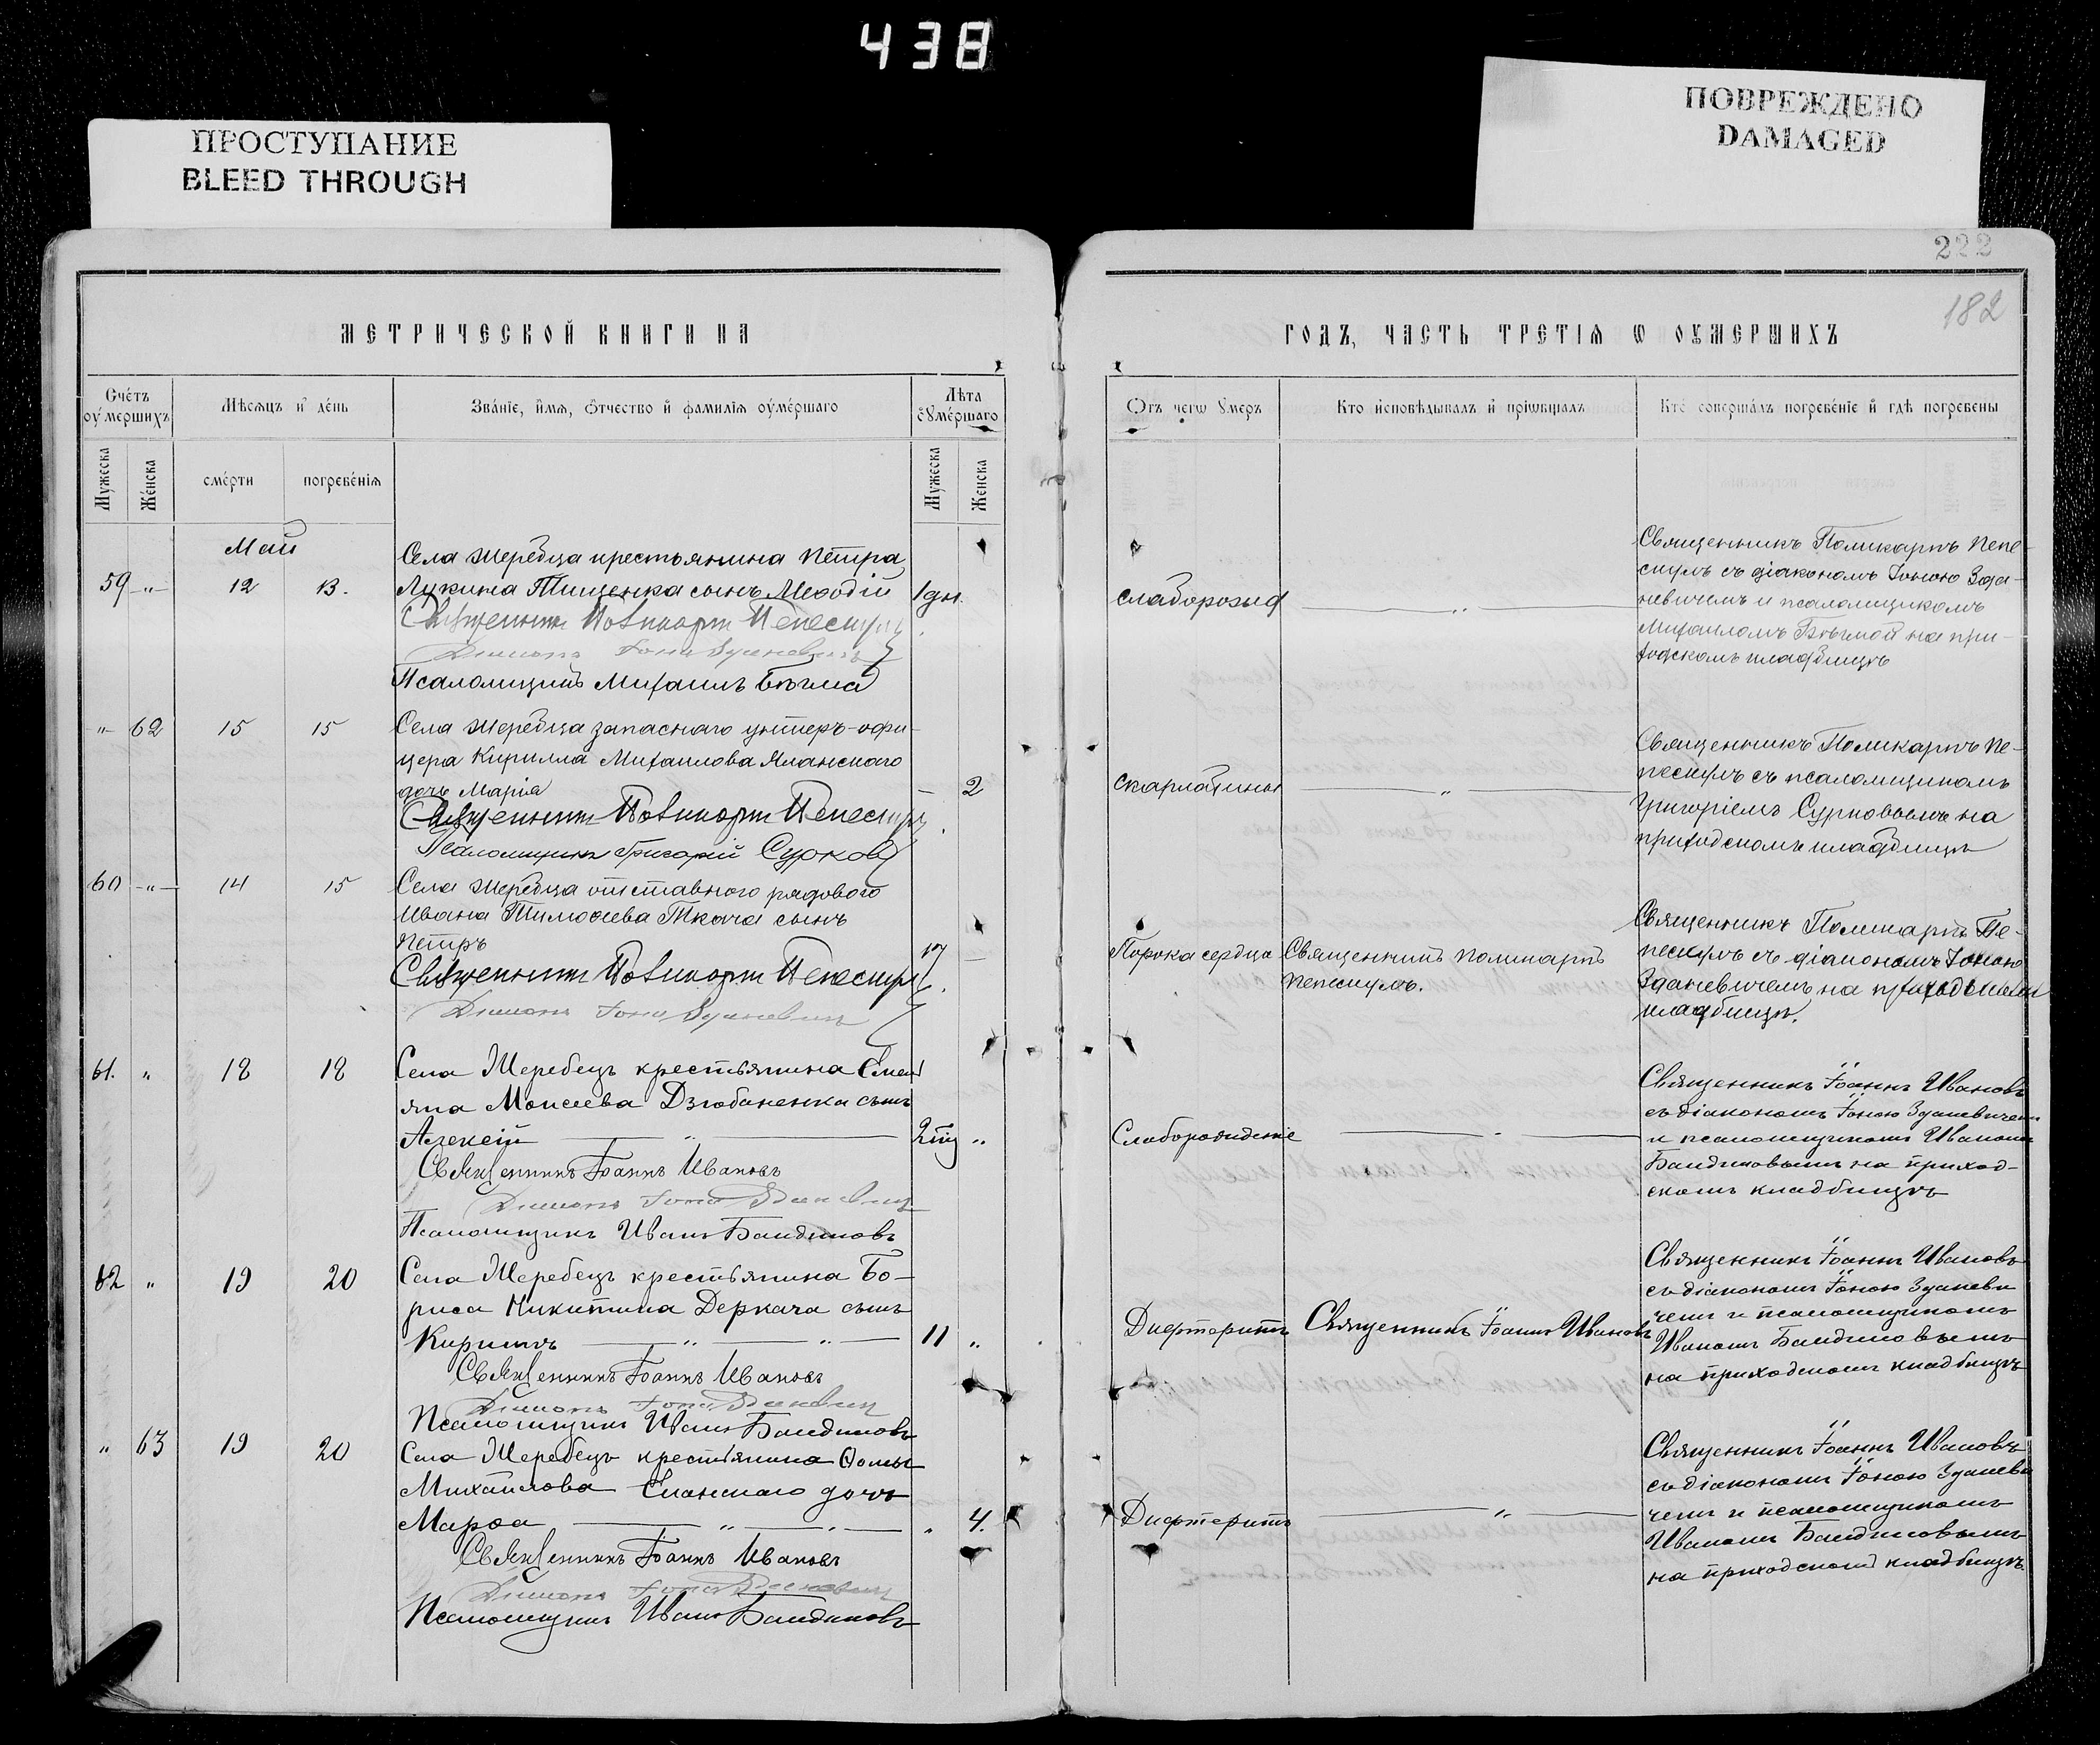 438
ПРОСТУПАНИЕ
BLEED THROUGH
ПОВРЕЖДЕНО
DAMAGED
222
182
МЕТРИЧЕСКОЙ КНИГИ НА
ГОДЪ, ЧАСТЬ ТРЕТІЯ Ѡ ОУМЕРШИХЪ
Счетъ оумершихъ
Мѣсяцъ и день
Званіе, имя, ѿчество и фамилія оумершаго
Лѣта оумершаго
Отъ чегѡ умеръ
Кто исповѣдывалъ и пріѡбщалъ
Кто совершалъ погребеніе и гдѣ погребены
Мужеска
Женска
смерти
погребенія
Мужеска
Женска
Май
Села Жеребца крестьянина Петра
59 -"- 12 13. Лукина Тищенка сынъ Меѳодій 1 дн.
Священникъ Поликарпъ Пепескулъ
Діаконъ Іона Зданевичъ
Псаломщикъ Михаилъ Бѣгма
слаборожд
"
Священникъ Поликарпъ Пепе-
скулъ съ діакономъ Іоною Зда-
невичемъ и псаломщикомъ
Михаиломъ Бѣгмой на при-
ходскомъ кладбищѣ
"- 62 15 15 Села Жеребца запаснаго унтеръ-офи-
цера Кирилла Михаилова Яланскаго
дочь Марія — 2
Священникъ Поликарпъ Пепескулъ
Псаломщикъ Григорій Сурковъ
скарлатины
"
Священникъ Поликарпъ Пе-
пескулъ съ псаломщикомъ
Григоріемъ Сурковымъ на
приходскомъ кладбищѣ
60 -"- 14 15 Села Жеребца отставного рядового
Ивана Тимоѳеева Ткача сынъ
Петръ 17 —
Священникъ Поликарпъ Пепескулъ
Діаконъ Іона Зданевичъ
Порока сердца
Священникъ Поликарпъ
Пепескулъ.
Священникъ Поликарпъ Пе-
пескулъ съ діакономъ Іоною
Зданевичемъ на приходскомъ
кладбищѣ.
61. " 18 18 Села Жеребецъ крестьянина
Моисеева Дзюбаненка сынъ
Алексій — " —
Священникъ Іоаннъ Ивановъ
Діаконъ Іона Зданевичъ
Псаломщикъ Иванъ Бандиковъ
Слаборожденіе
Священникъ Іоаннъ Ивановъ
съ діакономъ Іоною Зданевичемъ
и псаломщикомъ Иваномъ
Бандиковымъ на приход-
скомъ кладбищѣ
62 " 19 20 Села Жеребецъ крестьянина Бо-
риса Никитина Деркача сынъ
Кириллъ — " — " — 11 "
Священникъ Іоаннъ Ивановъ
Діаконъ Іона Зданевичъ
Псаломщикъ Иванъ Бандиковъ
Дифтеритъ
Священникъ Іоаннъ Ивановъ
Священникъ Іоаннъ Ивановъ
съ діакономъ Іоною Зданеви
чемъ и псаломщикомъ
Иваномъ Бандиковымъ
на приходскомъ кладбищѣ
" 63 19 20 Села Жеребецъ крестьянина Ѳомы
Михайлова Еланскаго дочь
Марѳа — " — " — " 4.
Священникъ Іоаннъ Ивановъ
Діаконъ Іона Зданевичъ
Псаломщикъ Иванъ Бандиковъ
Дифтеритъ
"
Священникъ Іоаннъ Ивановъ
съ діакономъ Іоною Зданеви
чемъ и псаломщикомъ
Иваномъ Бандиковымъ
на приходскомъ кладбищѣ.